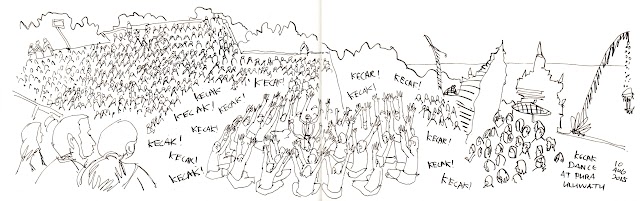 KECAK!
KECAK!
KECAK!
KECAK!
KECAK
KECAK!
KECAK!
KECAK!
KECAK!
KECAK!
KECAK!
KECAK!
KECAK!
KECAK!
KECAK
DANCE
AT PURA
ULUWATU
10
AUG
2015